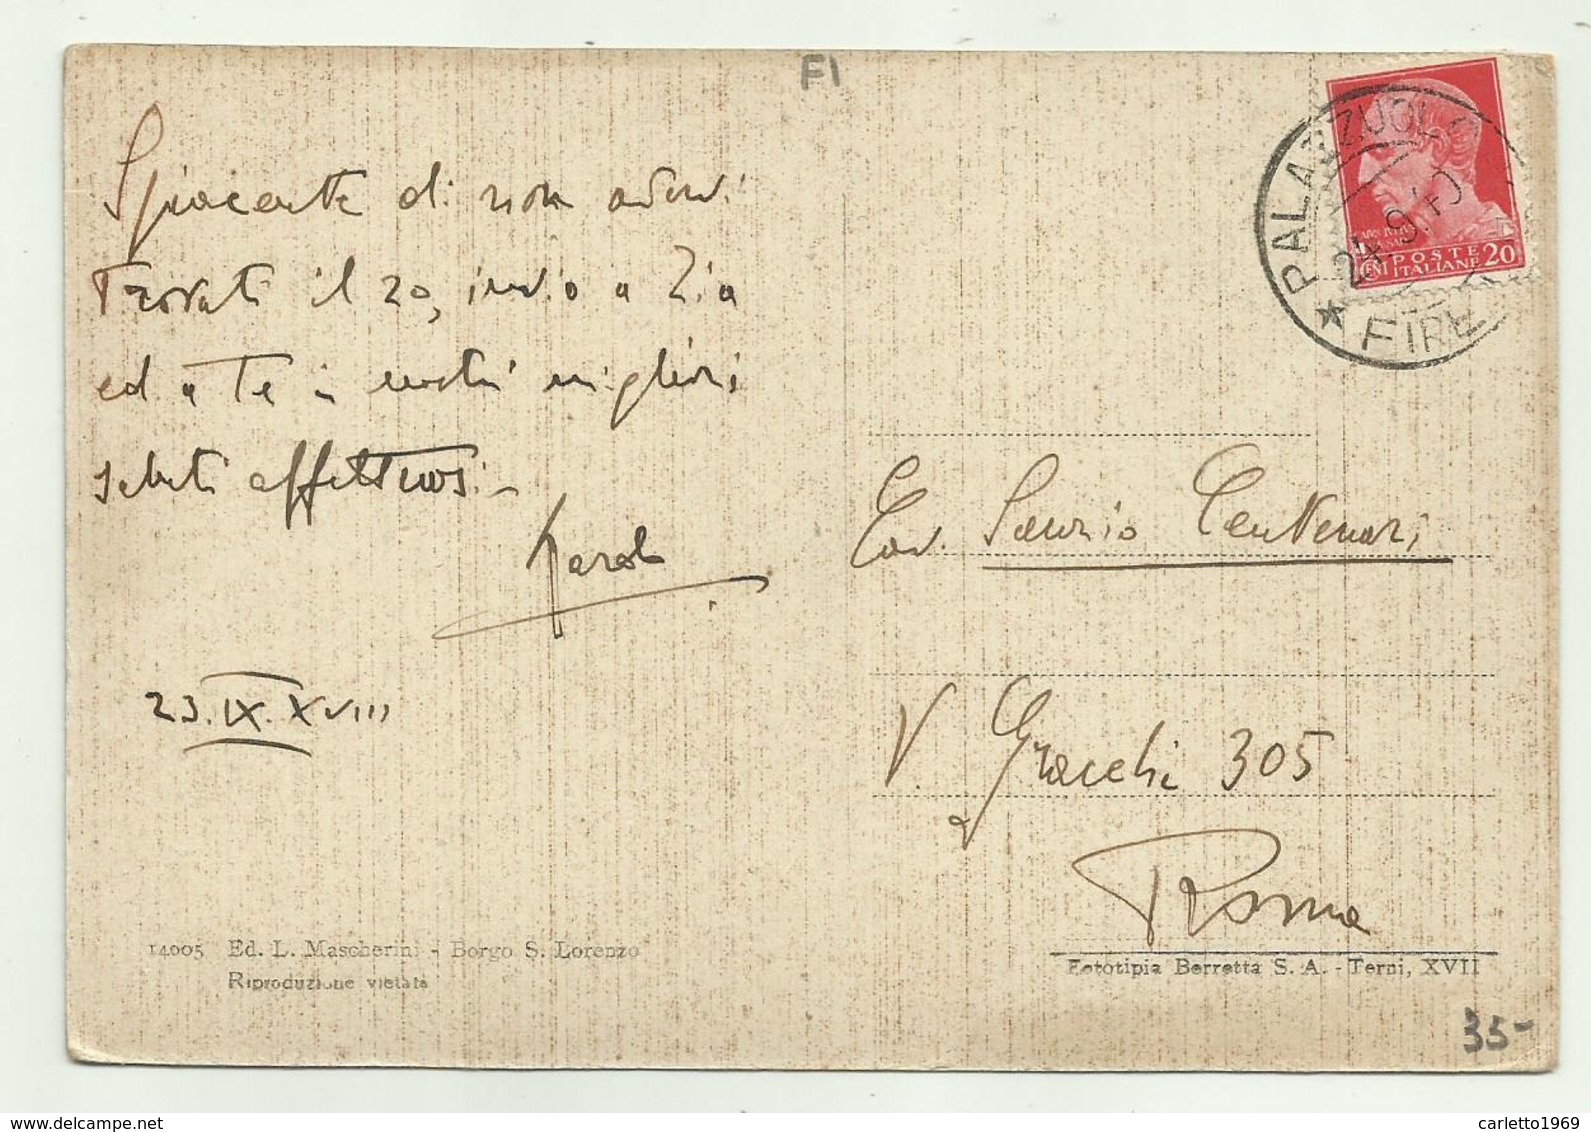 FI
Spiacente di non avervi
trovati il 20, invio a Zia
ed a Te i nostri migliori
saluti affettuosi -
23.IX.XVIII
PALAZZUOLO
24.9.40
FIRE
POSTE
ITALIANE 20
CENT
Cav. Sanzio Centenari
V. Gracchi 305
Roma
14005 Ed. L. Mascherini - Borgo S. Lorenzo
Riproduzione vietata
Fototipia Berretta S. A. - Terni, XVII
35-
carletto1969